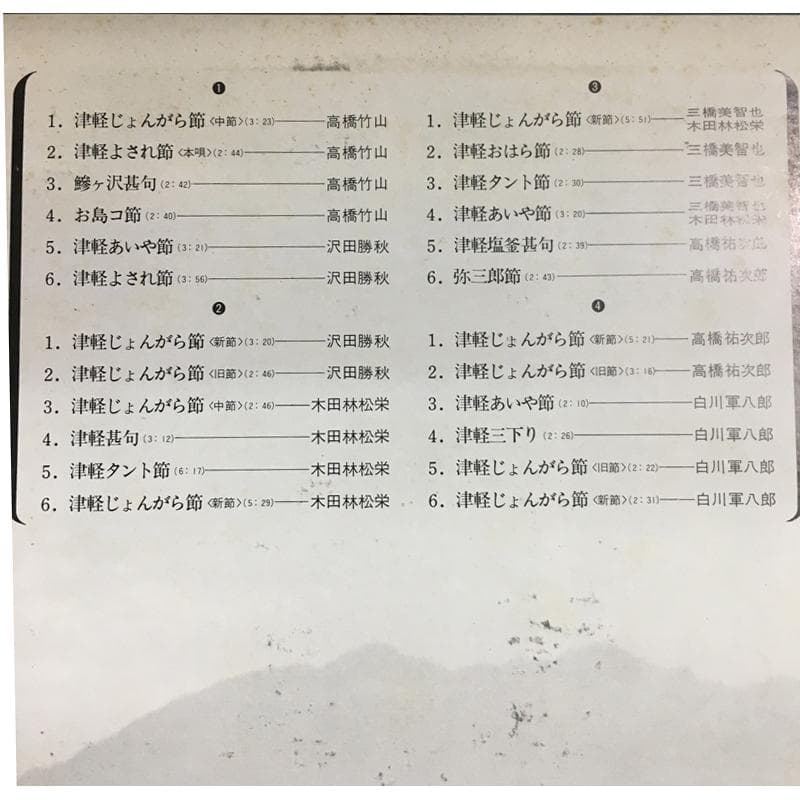 ❶
1. 津軽じょんがら節〈中節〉(3:23)――高橋竹山
2. 津軽よされ節〈本唄〉(2:44)――高橋竹山
3. 鰺ヶ沢甚句(2:42)――高橋竹山
4. お島コ節(2:40)――高橋竹山
5. 津軽あいや節(3:21)――沢田勝秋
6. 津軽よされ節(3:56)――沢田勝秋
❷
1. 津軽じょんがら節〈新節〉(3:20)――沢田勝秋
2. 津軽じょんがら節〈旧節〉(2:46)――沢田勝秋
3. 津軽じょんがら節〈中節〉(2:46)――木田林松栄
4. 津軽甚句(3:12)――木田林松栄
5. 津軽タント節(6:17)――木田林松栄
6. 津軽じょんがら節〈新節〉(5:29)――木田林松栄
❸
1. 津軽じょんがら節〈新節〉(5:51)――三橋美智也
木田林松栄
2. 津軽おはら節(2:28)――三橋美智也
3. 津軽タント節(2:30)――三橋美智也
4. 津軽あいや節(3:20)――三橋美智也
木田林松栄
5. 津軽塩釜甚句(2:39)――高橋祐次郎
6. 弥三郎節(2:43)――高橋祐次郎
❹
1. 津軽じょんがら節〈新節〉(5:21)――高橋祐次郎
2. 津軽じょんがら節〈旧節〉(3:16)――高橋祐次郎
3. 津軽あいや節(2:10)――白川軍八郎
4. 津軽三下り(2:26)――白川軍八郎
5. 津軽じょんがら節〈旧節〉(2:22)――白川軍八郎
6. 津軽じょんがら節〈新節〉(2:31)――白川軍八郎